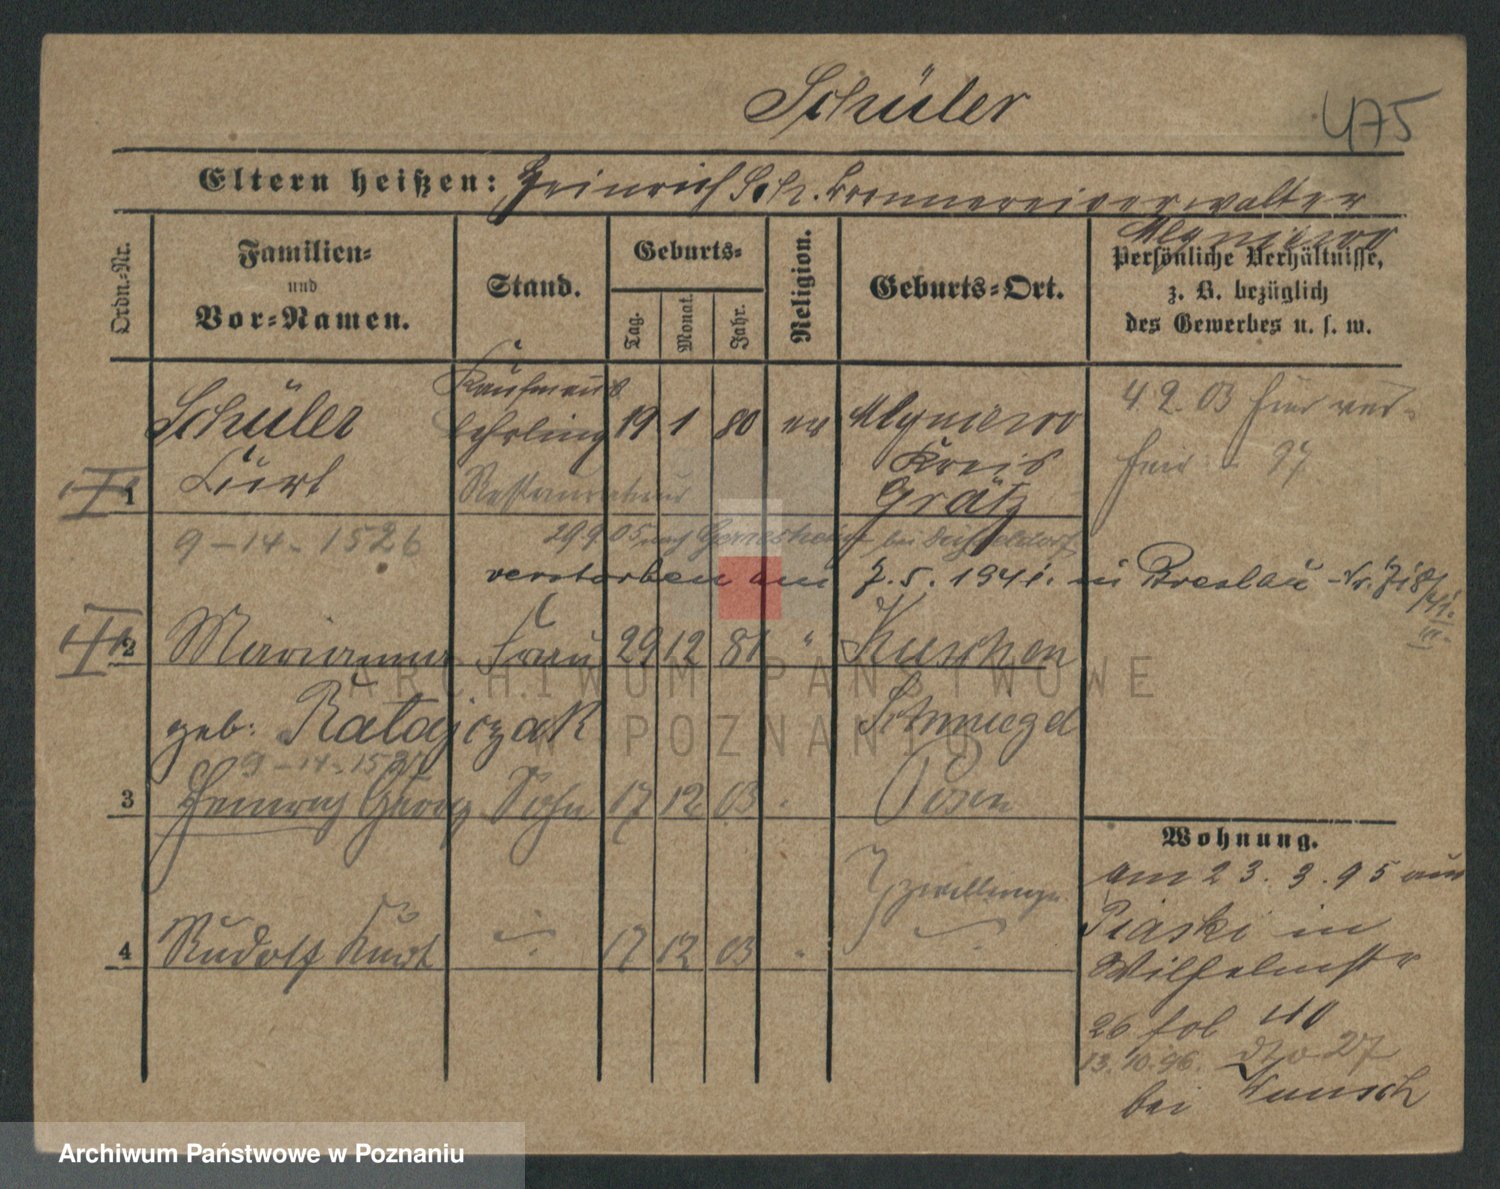 Schüler
475
Eltern heißen: Heinrich Sch. Brennereiverwalter
Mlyniewo
Ordn.-Nr.
Familien-
und
Vor-Namen.
Stand.
Geburts-
Tag.
Monat.
Jahr.
Religion.
Geburts-Ort.
Persönliche Verhältnisse,
z. B. bezüglich
des Gewerbes u. s. w.
Schüler
Curt
1
Kaufmanns
Lehrling
Restaurateur
19 1 80 ev
Mlyniewo
Kreis
Grätz
4.2.03
9-14-1526
29.9.05 nach Gerresheim bei Düsseldorf
verstorben am 7.5.1941. in Breslau
2 Marianna Frau 29 12 81 "
Kuschen
Schmiegel
geb: Ratajczak
9-14-152
3 Heinrich Georg Sohn 17 12 03
Posen
Zwillinge
4 Rudolf Kurt 17 12 03
Wohnung.
am 23.3.95 aus
Piaski in
Wilhelmstr
26 fol 110
13.10.96. dto 27
bei
ARCHIWUM PAŃSTWOWE
W POZNANIU
Archiwum Państwowe w Poznaniu